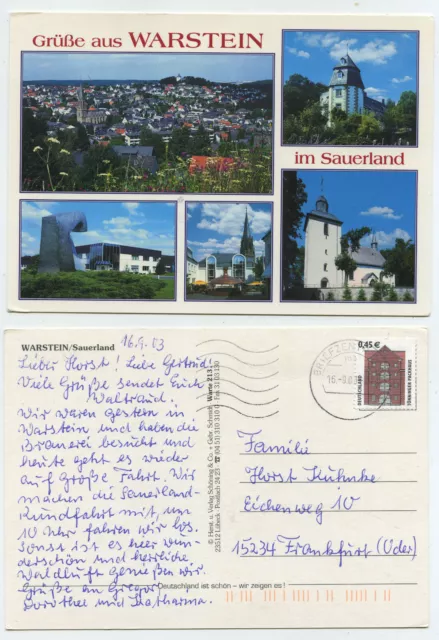 Grüße aus WARSTEIN
im Sauerland
WARSTEIN/Sauerland
16.9.03
Lieber Horst! Liebe Gertrud!
Viele Grüße sendet Euch
Waltraud.
Wir waren gestern in
Warstein und haben die
Brauerei besucht und
heute geht es wieder
auf Große Fahrt. Wir
machen die Sauerland-
rundfahrt mit, um
10 Uhr fahren wir los.
Sonst ist es hier wun-
derschön und herrliche
Waldluft genießen wir.
Grüße an Gregor
Dorothee und Katharina.
© Herst. u. Verlag Schöning & Co. + Gebr. Schmidt
23512 Lübeck · Postfach 24 23 ☎ (04 51) 310 310 Fax 3103130
Warste 213
Deutschland ist schön – wir zeigen es!
BRIEFZEN
16.-9.03
0,45 €
DEUTSCHLAND
TÖNNINGER PACKHAUS
Familie
Horst Kuhnke
Eichenweg 10
15234 Frankfurt (Oder)